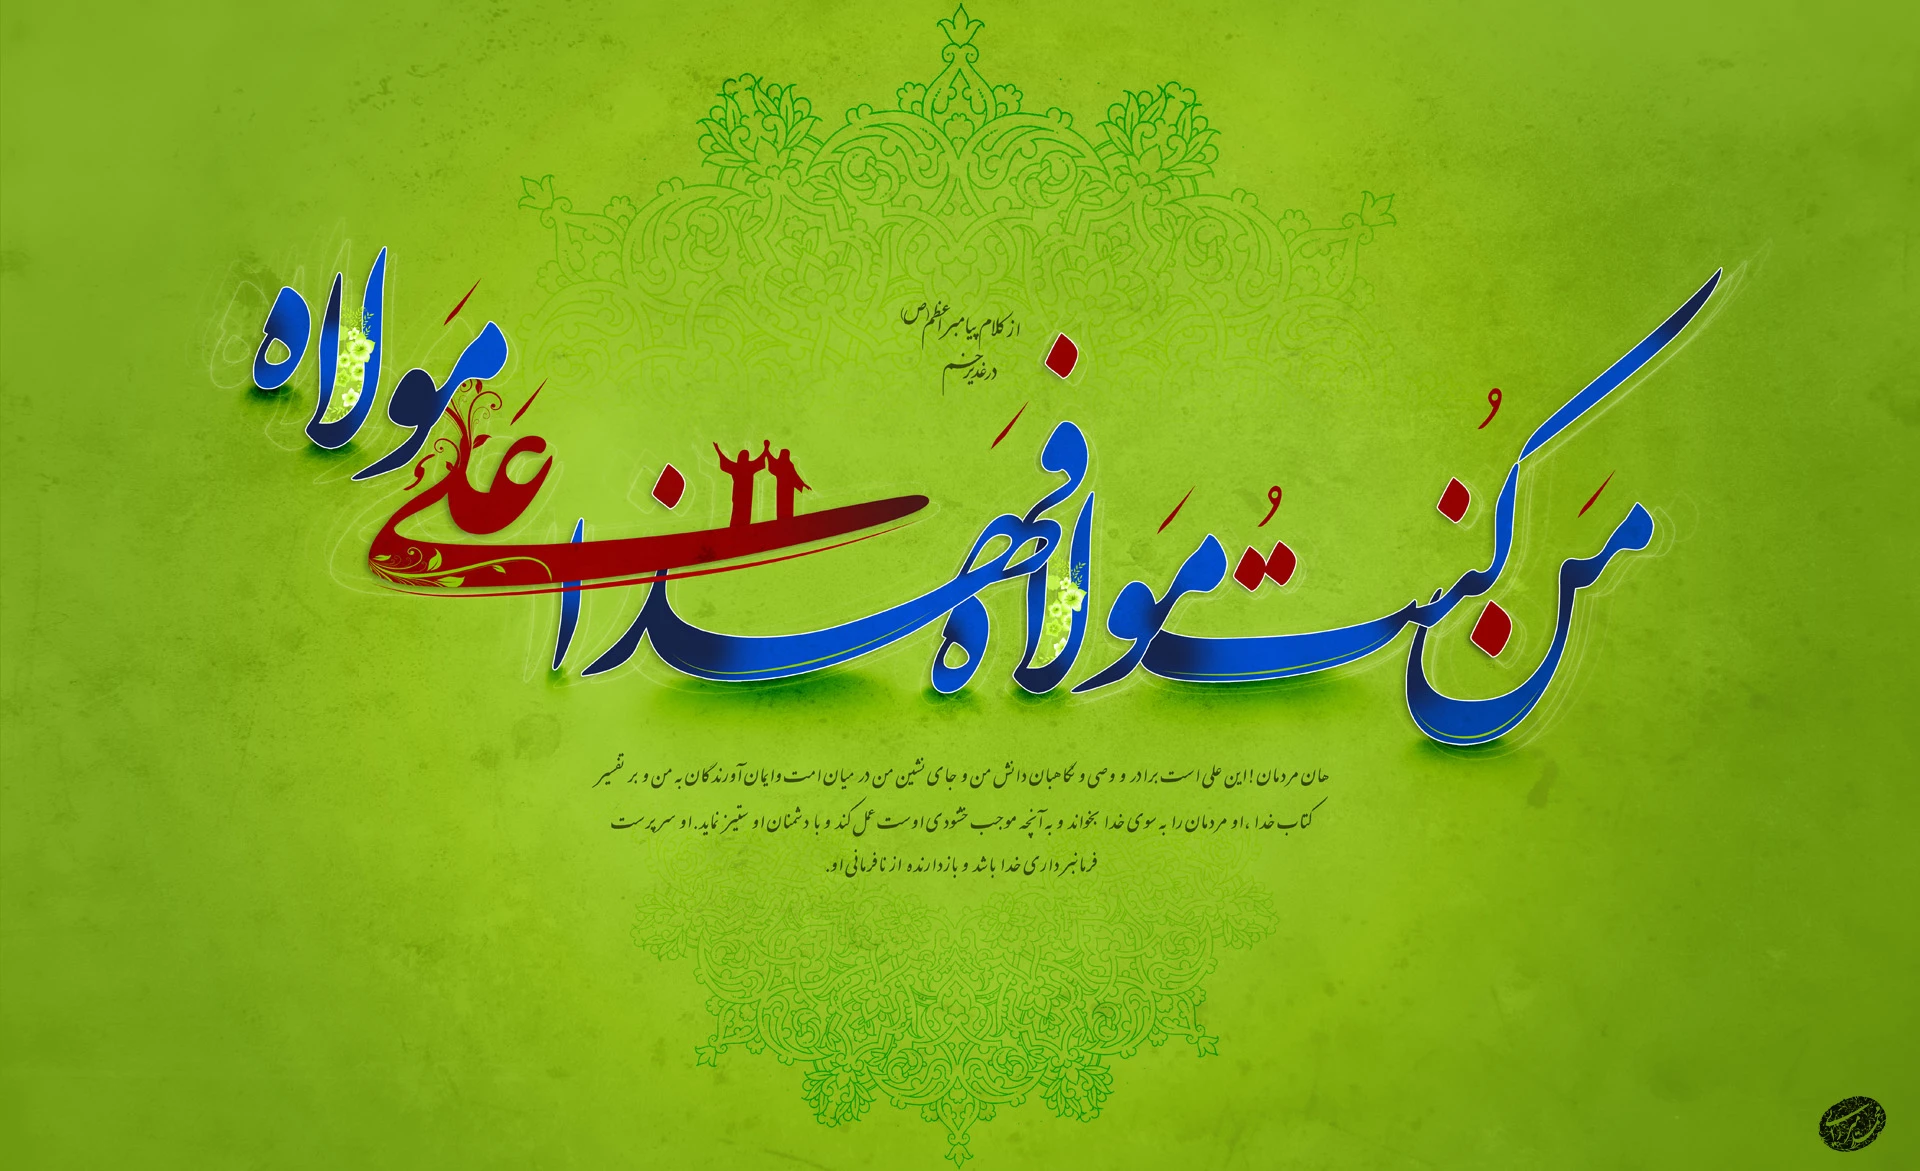 از کلام پیامبر اعظم(ص)
در غدیر خم
مَن كُنتُ مَولاه فَهذا عَلیٌ مَولاه
هان مردمان! این علی است برادر و وصی و نگاهبان دانش من و جای نشین من در میان امت و ایمان آورندگان به من و بر تفسیر
کتاب خدا، او مردمان را به سوی خدا بخواند و به آنچه موجب خشنودی اوست عمل کند و با دشمنان او ستیز نماید. او سرپرست
فرمانبرداری خدا باشد و بازدارنده از نافرمانی او.